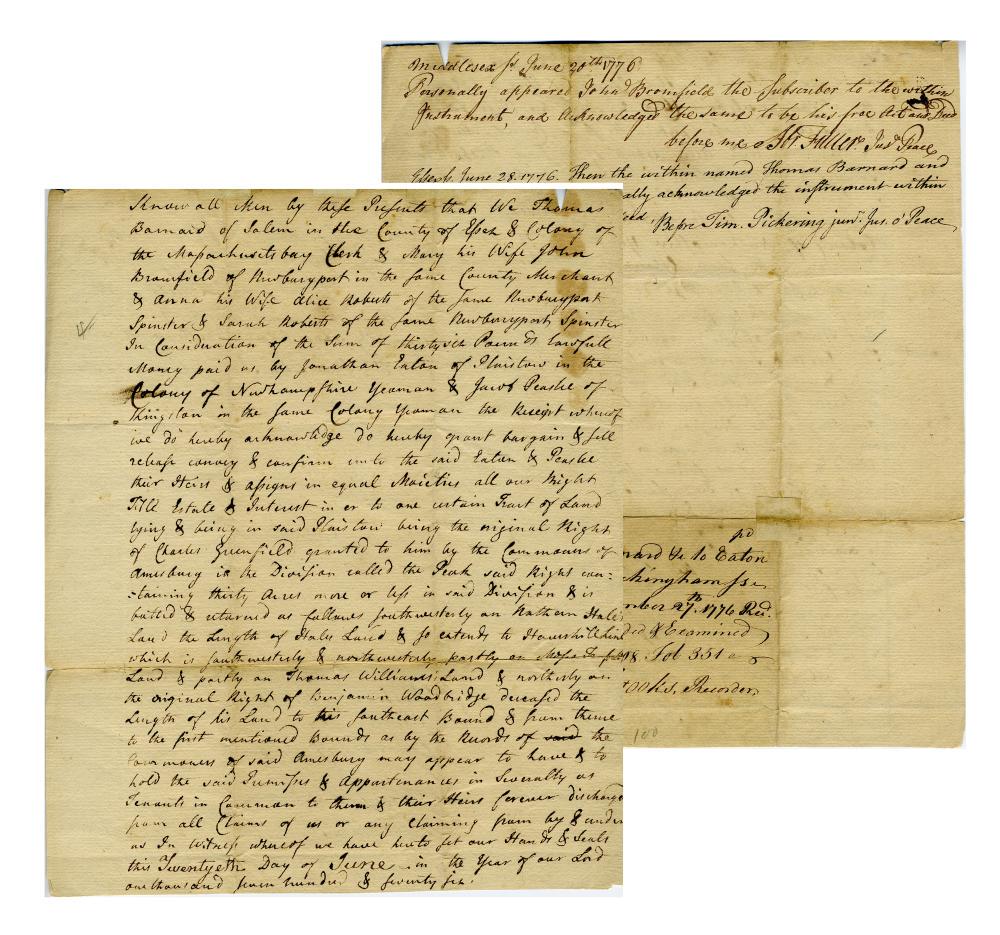 Middlesex ss June 20th 1776
Personally appeared John Bromfield the Subscriber to the within
Instrument, and Acknowledged the same to be his free Act and Deed
before me Fuller Jus. Peace
Essex ss June 28. 1776. Then the within named Thomas Barnard and
ally acknowledged the instrument within
Before Tim. Pickering junr. Jus. o' Peace
Know all Men by these Presents that We Thomas
Barnard of Salem in the County of Essex & Colony of
the Massachusetsbay Clerk & Mary his Wife John
Bromfield of Newburyport in the same County Merchant
& Anna his Wife Alice Roberts of the same Newburyport
Spinster & Sarah Roberts of the same Newburyport Spinster
In Consideration of the Sum of thirtysix Pounds lawfull
Money paid us by Jonathan Eaton of Plaistow in the
Colony of Newhampshire Yeoman & Jacob Peaslee of
Kingston in the same Colony Yeoman the Receipt whereof
we do hereby acknowledge do hereby grant bargain & sell
release convey & confirm unto the said Eaton & Peaslee
their Heirs & assigns in equal Moieties all our Right
Title Estate & Interest in or to one certain Tract of Land
lying & being in said Plaistow being the original Right
of Charles Greenfield granted to him by the Commoners of
Amesbury in the Division called the Peak said Right con:
:taining thirty Acres more or less in said Division & is
butted & returned as follows southwesterly on Nathan Hales
Land the Length of Hales Land & so extends to Haverhill line
which is southwesterly & northwesterly partly on
Land & partly on Thomas Williams Land & northerly on
the original Right of Benjamin Woodbridge deceased the
Length of his Land to his southeast Bound & from thence
to the first mentioned Bounds as by the Records of said the
Commoners of said Amesbury may appear to have & to
hold the said Premisses & Appurtenances in Severalty as
Tenants in Common to them & their Heirs forever discharged
from all Claims of us or any claiming from by & under
us In Witness whereof we have hereto set our Hands & Seals
this Twentyeth Day of June in the Year of our Lord
one thousand seven hundred & seventy six.
nard &c to Eaton
kingham ss
mber 27th. 1776 Recd.
ded & Examined
Fol 351
ooks, Recorder
100